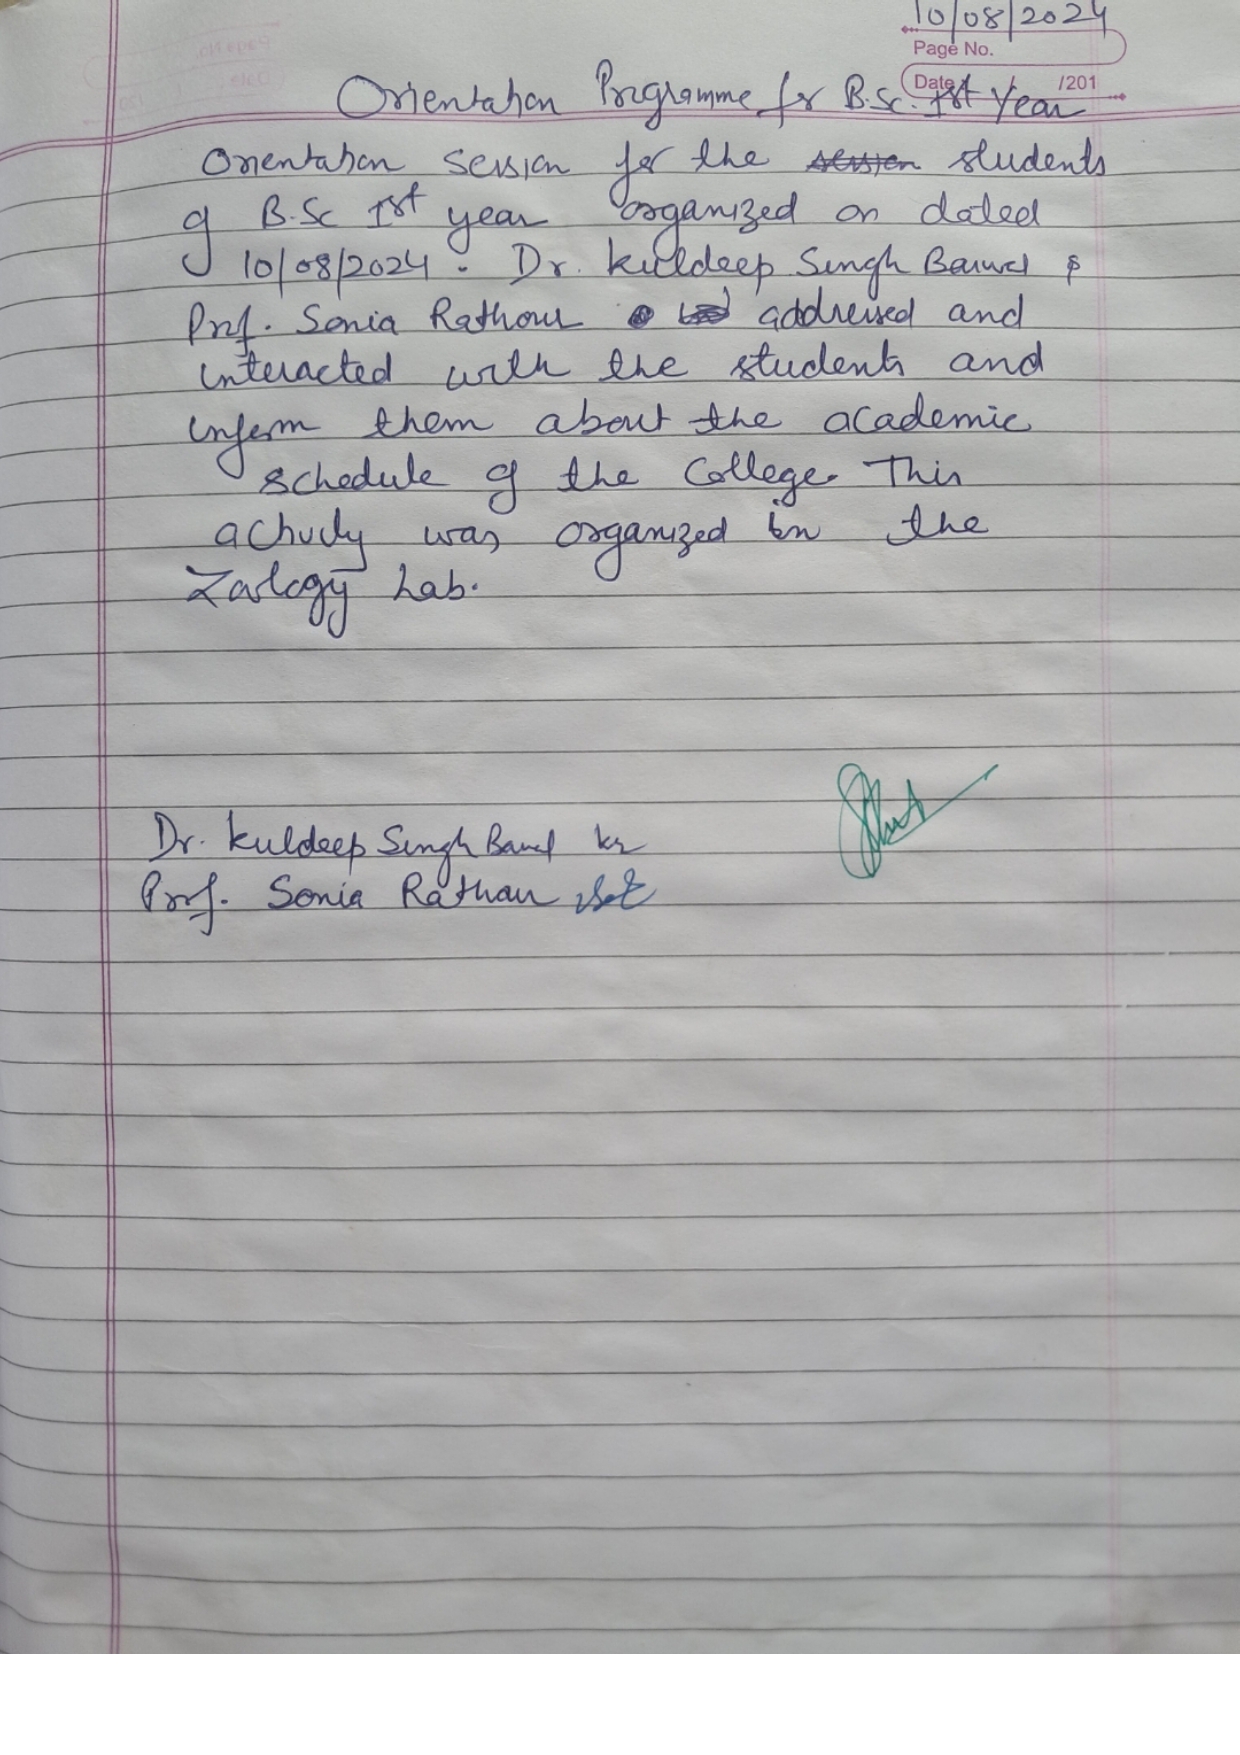 10/08/2024
Page No.
Date / /201
Orientation Programme for B.Sc. Ist Year
Orientation session for the session students
of B.Sc Ist year organized on dated
10/08/2024. Dr. Kuldeep Singh &
Prof. Sonia Rathour addressed and
interacted with the students and
inform them about the academic
schedule of the College. This
activity was organized in the
Zoology Lab.
Dr. Kuldeep Singh
Prof. Sonia